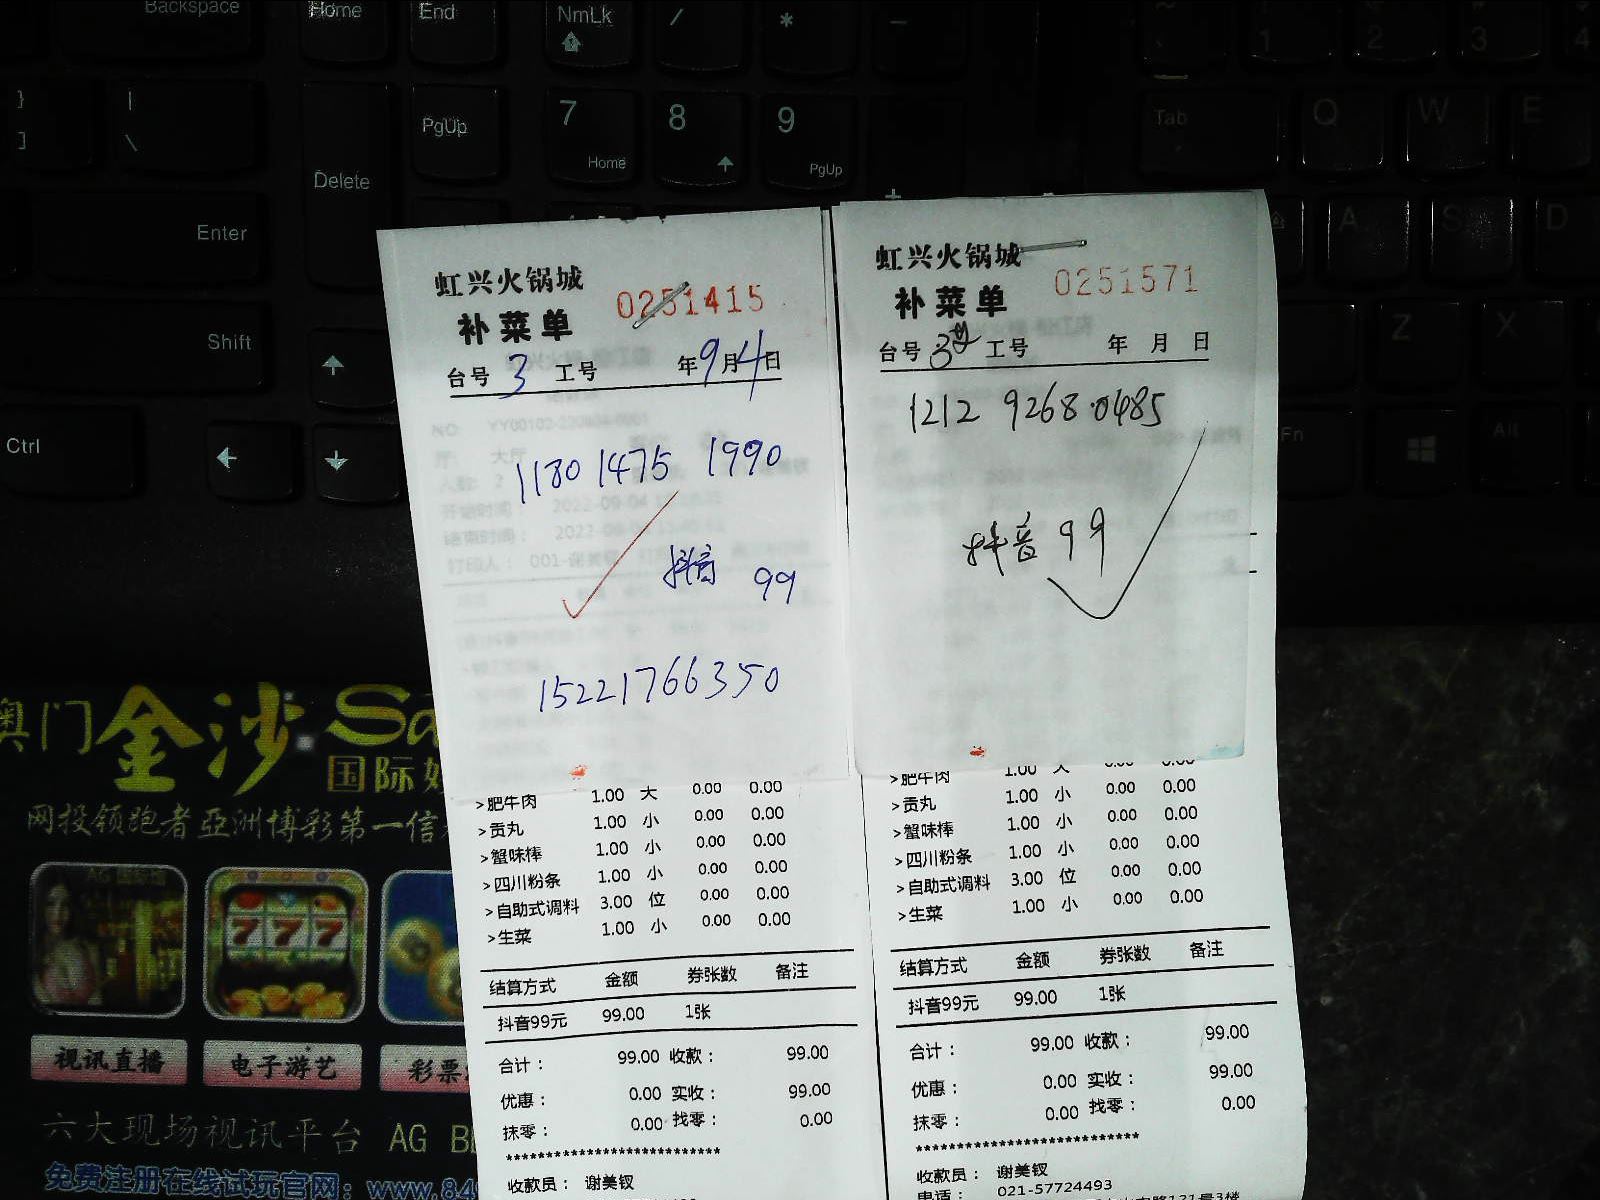 Backspace
Home
End
NmLk
/
*
-
1
2
3
4
}
]
|
\
PgUp
7
Home
8
9
PgUp
Tab
Q
W
E
Delete
Enter
A
S
D
Shift
Z
X
Ctrl
Fn
Alt
虹兴火锅城
补菜单 0251415
台号 3 工号 年9月4日
1180 1475 1990
抖音 99
15221766350
>肥牛肉 1.00 大 0.00 0.00
>贡丸 1.00 小 0.00 0.00
>蟹味棒 1.00 小 0.00 0.00
>四川粉条 1.00 小 0.00 0.00
>自助式调料 3.00 位 0.00 0.00
>生菜 1.00 小 0.00 0.00
结算方式 金额 券张数 备注
抖音99元 99.00 1张
合计： 99.00 收款： 99.00
优惠： 0.00 实收： 99.00
抹零： 0.00 找零： 0.00
***************************
收款员： 谢美钗
虹兴火锅城
补菜单 0251571
台号 3 工号 年 月 日
1212 9268 0485
抖音 99
>肥牛肉 1.00 大 0.00 0.00
>贡丸 1.00 小 0.00 0.00
>蟹味棒 1.00 小 0.00 0.00
>四川粉条 1.00 小 0.00 0.00
>自助式调料 3.00 位 0.00 0.00
>生菜 1.00 小 0.00 0.00
结算方式 金额 券张数 备注
抖音99元 99.00 1张
合计： 99.00 收款： 99.00
优惠： 0.00 实收： 99.00
抹零： 0.00 找零： 0.00
***************************
收款员： 谢美钗
电话： 021-57724493
澳门金沙 Sa
国际
网投领跑者亞洲博彩第一信
777
视讯直播
电子游艺
彩票
六大现场视讯平台 AG
免费注册在线试玩官网：www.84